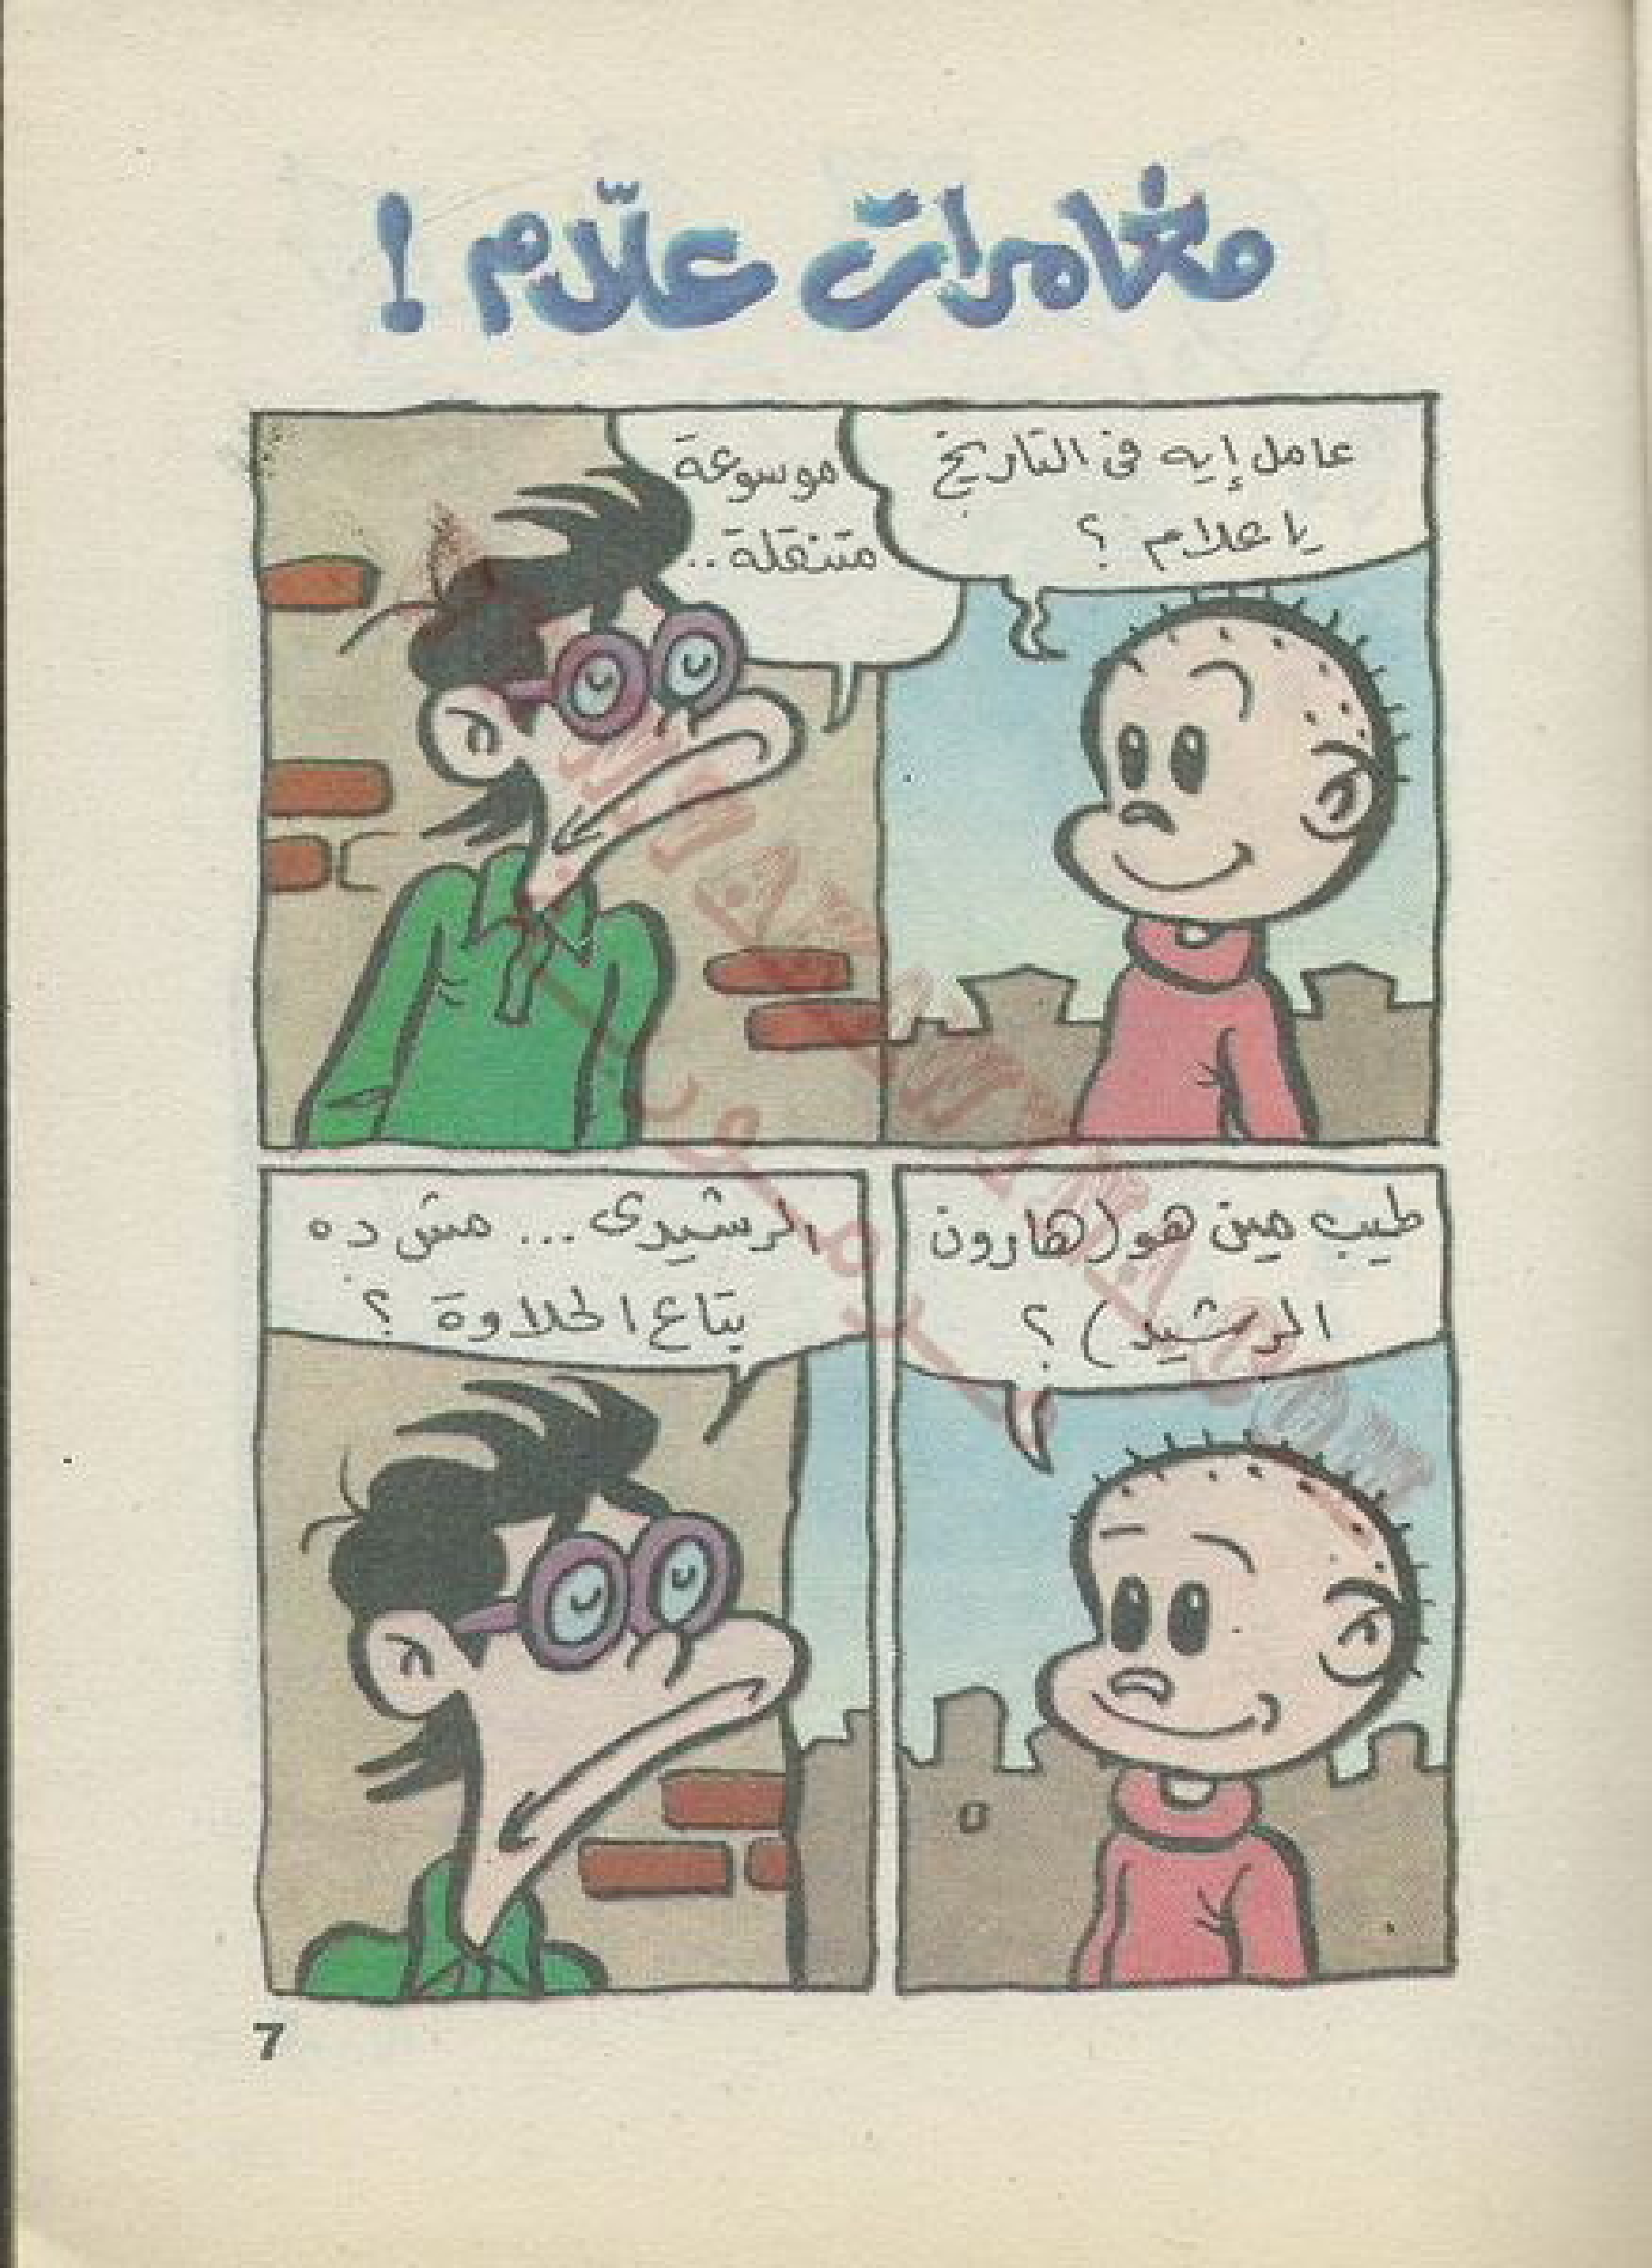 مغامرات علّام !
عامل إيه فى التاريخ
يا علام ؟
موسوعة
متنقلة ..
طيب مين هو (هارون
الرشيد) ؟
الرشيدى ... مش ده
بتاع الحلاوة ؟
7